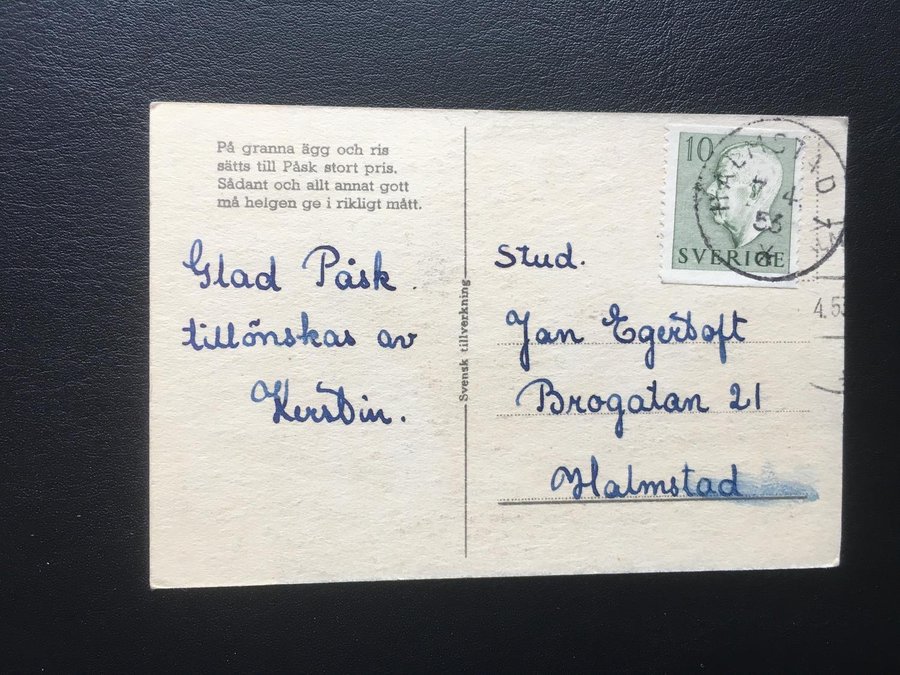 På granna ägg och ris
sätts till Påsk stort pris.
Sådant och allt annat gott
må helgen ge i rikligt mått.
Glad Påsk.
tillönskas av
Kerstin.
Svensk tillverkning
10
SVERIGE
HALMSTAD
7 4
53
4.53
Stud.
Jan Egertoft
Brogatan 21
Halmstad